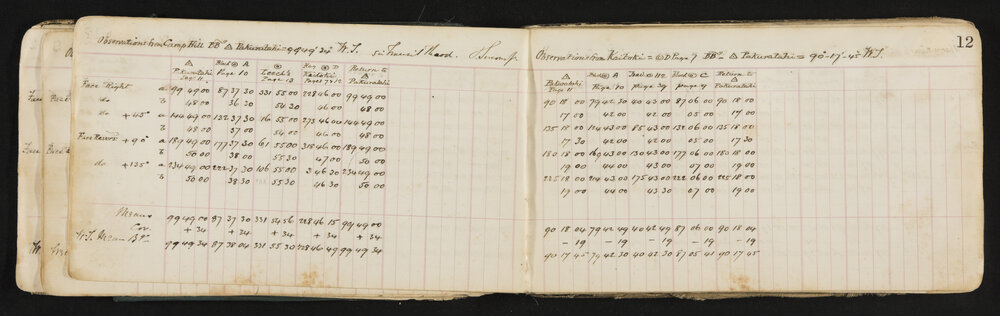 Observations from Camp Hill BBn △ Pakuratahi = 99°49'34" W.S. 5 in Transit Heard. J. Simonfr
△ Pakuratahi Page 11 Block ⊙ A Page 10 ⊙ Leech's Page 13 Reg ⊙ D Kaitoki Pages 7 & 12 Return to △ Pakuratahi
Face Right a 99 49 00 87 37 30 331 55 00 228 46 00 99 49 00
do b 48 00 36 30 54 30 46 00 48 00
do +45° a 144 49 00 132 37 30 16 55 00 273 46 00 144 49 00
b 48 00 37 00 54 00 46 00 48 00
Face Revers +90° a 189 49 00 177 37 30 61 55 00 318 46 00 189 49 00
b 50 00 38 00 55 30 47 00 50 00
do +135° a 234 49 00 222 37 30 106 55 00 3 46 30 234 49 00
b 50 00 38 30 55 30 46 30 50 00
Means 99 49 00 87 37 30 331 54 56 228 46 15 99 49 00
Cor. + 34 + 34 + 34 + 34 + 34
W.S. Mean Bg 99 49 34 87 38 04 331 55 30 228 46 49 99 49 34
Face
Face
W
12
Observations from Kaitoki = ⊙ D Page 7 BBn △ Pakuratahi = 90°-17'-45" W.S.
△ Pakuratahi Page 11 Block ⊙ A Page 10 ⊙ 12 Page 39 Block ⊙ C Page 9 Return to △ Pakuratahi
90 18 00 79 42 30 40 43 00 87 06 00 90 18 00
17 00 42 00 42 00 05 00 17 00
135 18 00 124 43 00 85 43 00 132 06 00 135 18 00
17 30 42 00 42 00 05 00 17 30
180 18 00 169 43 00 130 43 00 177 06 00 180 18 00
19 00 44 00 43 00 07 00 19 00
225 18 00 214 43 00 175 43 00 222 06 00 225 18 00
19 00 44 00 43 30 07 00 19 00
90 18 04 79 42 49 40 42 49 87 06 00 90 18 04
- 19 - 19 - 19 - 19 - 19
90 17 45 79 42 30 40 42 30 87 05 41 90 17 45